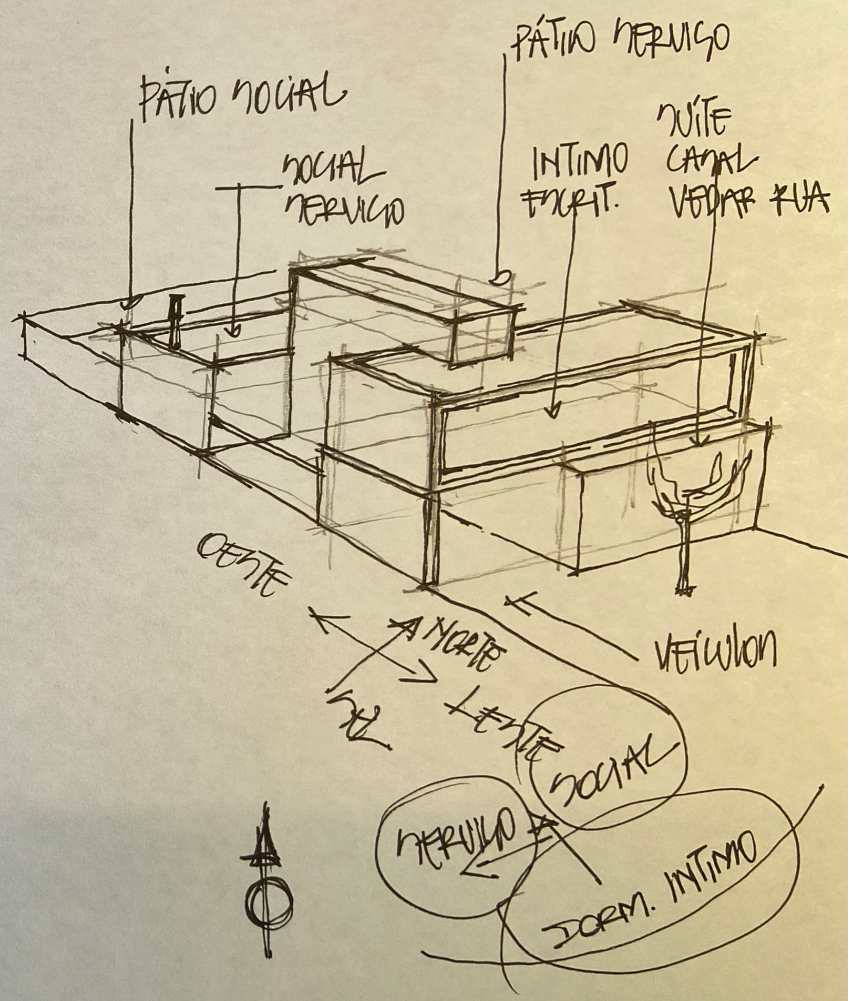 PÁTIO SERVIÇO
PÁTIO SOCIAL
SOCIAL
SERVIÇO
INTIMO
ESCRIT.
SUÍTE
CASAL
VEDAR RUA
OESTE
NORTE
SUL
LESTE
VEÍCULOS
SOCIAL
SERVIÇO
DORM. INTIMO